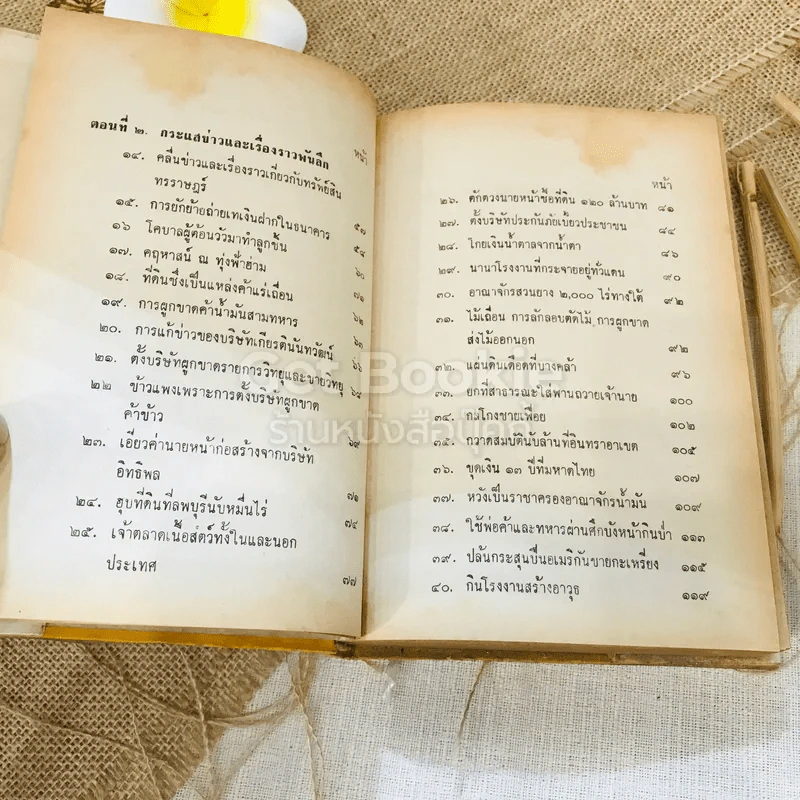 ตอนที่ ๒. กระแสข่าวและเรื่องราวพันลึก หน้า
๑๔. คลื่นข่าวและเรื่องราวเกี่ยวกับทรัพย์สิน
ทรราษฎร์ ๕๗
๑๕. การยักย้ายถ่ายเทเงินฝากในธนาคาร ๕๙
๑๖ โคบาลผู้ต้อนวัวมาทำลูกชิ้น ๖๐
๑๗. คฤหาสน์ ณ ทุ่งฟ้าฮ่าม ๗๑
๑๘. ที่ดินซึ่งเป็นแหล่งค้าแร่เถื่อน ๖๒
๑๙. การผูกขาดค้าน้ำมันสามทหาร ๖๓
๒๐. การแก้ข่าวของบริษัทเกียรตินันทวัฒน์ ๖๖
๒๑. ตั้งบริษัทผูกขาดรายการวิทยุและขายวิทยุ ๖๘
๒๒ ข้าวแพงเพราะการตั้งบริษัทผูกขาด
ค้าข้าว ๖๙
๒๓. เอี่ยวค่านายหน้าก่อสร้างจากบริษัท
อิทธิพล ๗๑
๒๔. ฮุบที่ดินที่ลพบุรีนับหมื่นไร่ ๗๔
๒๕. เจ้าตลาดเนื้อสัตว์ทั้งในและนอก
ประเทศ ๗๗
หน้า
๒๖. ตักตวงนายหน้าซื้อที่ดิน ๑๒๐ ล้านบาท ๘๑
๒๗. ตั้งบริษัทประกันภัยเบี้ยวประชาชน ๘๔
๒๘. ไถยเงินน้ำตาลจากน้ำตา ๘๖
๒๙. นานาโรงงานที่กระจายอยู่ทั่วแดน ๙๐
๓๐. อาณาจักรสวนยาง ๒,๐๐๐ ไร่ทางใต้ ๙๒
๓๑. ไม้เถื่อน การลักลอบตัดไม้ การผูกขาด
ส่งไม้ออกนอก ๙๒
๓๒. แผ่นดินเดือดที่บางคล้า ๙๖
๓๓. ยกที่สาธารณะใส่พานถวายเจ้านาย ๑๐๐
๓๔. กลโกงชายเฟือย ๑๐๒
๓๕. กวาดสมบัตินับล้านที่อินทราอาเขต ๑๐๕
๓๖. ขุดเงิน ๑๓ ปีที่มหาดไทย ๑๐๗
๓๗. หวังเป็นราชาครองอาณาจักรน้ำมัน ๑๐๙
๓๘. ใช้พ่อค้าและทหารผ่านศึกบังหน้ากินป่า ๑๑๓
๓๙. ปล้นกระสุนปืนอเมริกันขายกะเหรี่ยง ๑๑๕
๔๐. กินโรงงานสร้างอาวุธ ๑๑๙
Got Book
ร้านหนังสือ